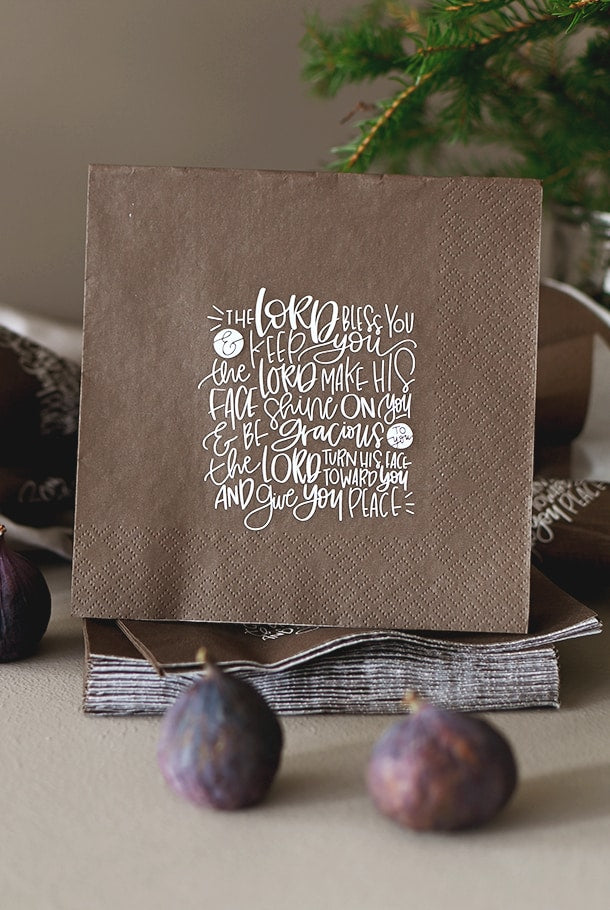 THE LORD BLESS YOU
& KEEP you
the LORD MAKE HIS
FACE shine ON you
& BE gracious TO you
the LORD TURN HIS FACE TOWARD you
AND give you PEACE
you PEACE